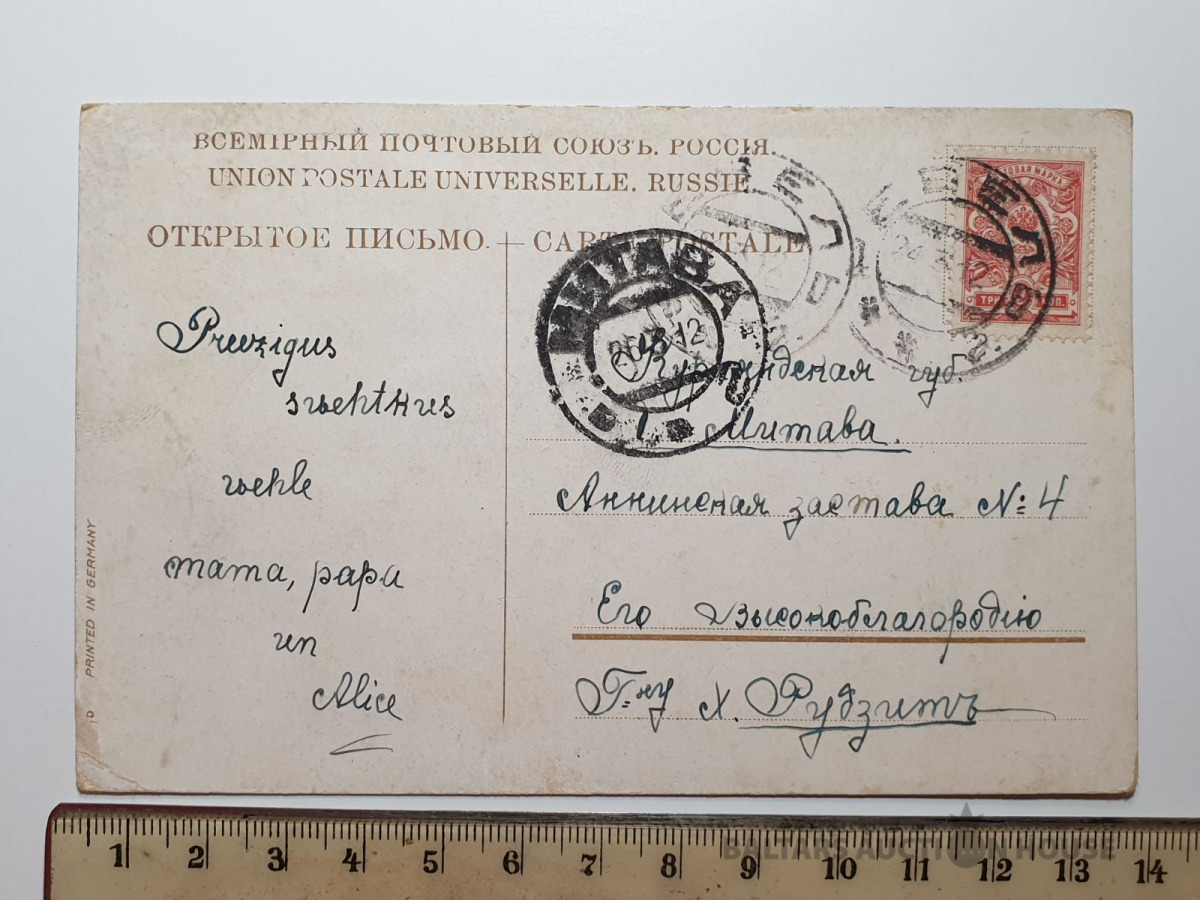 ВСЕМІРНЫЙ ПОЧТОВЫЙ СОЮЗЪ. РОССІЯ.
UNION POSTALE UNIVERSELLE. RUSSIE
ОТКРЫТОЕ ПИСЬМО. — CARTE POSTALE
Preezigus
swehtkus
wehle
mama, papa
un
Alice
PRINTED IN GERMANY
МИТАВА
ТРИ КОП.
Курляндская губ.
Митава.
Аннинская застава №: 4
Его Высокоблагородію
Г-ну Х. Рудзитъ
1 2 3 4 5 6 7 8 9 10 11 12 13 14
BALTARS AUCTION HOUSE